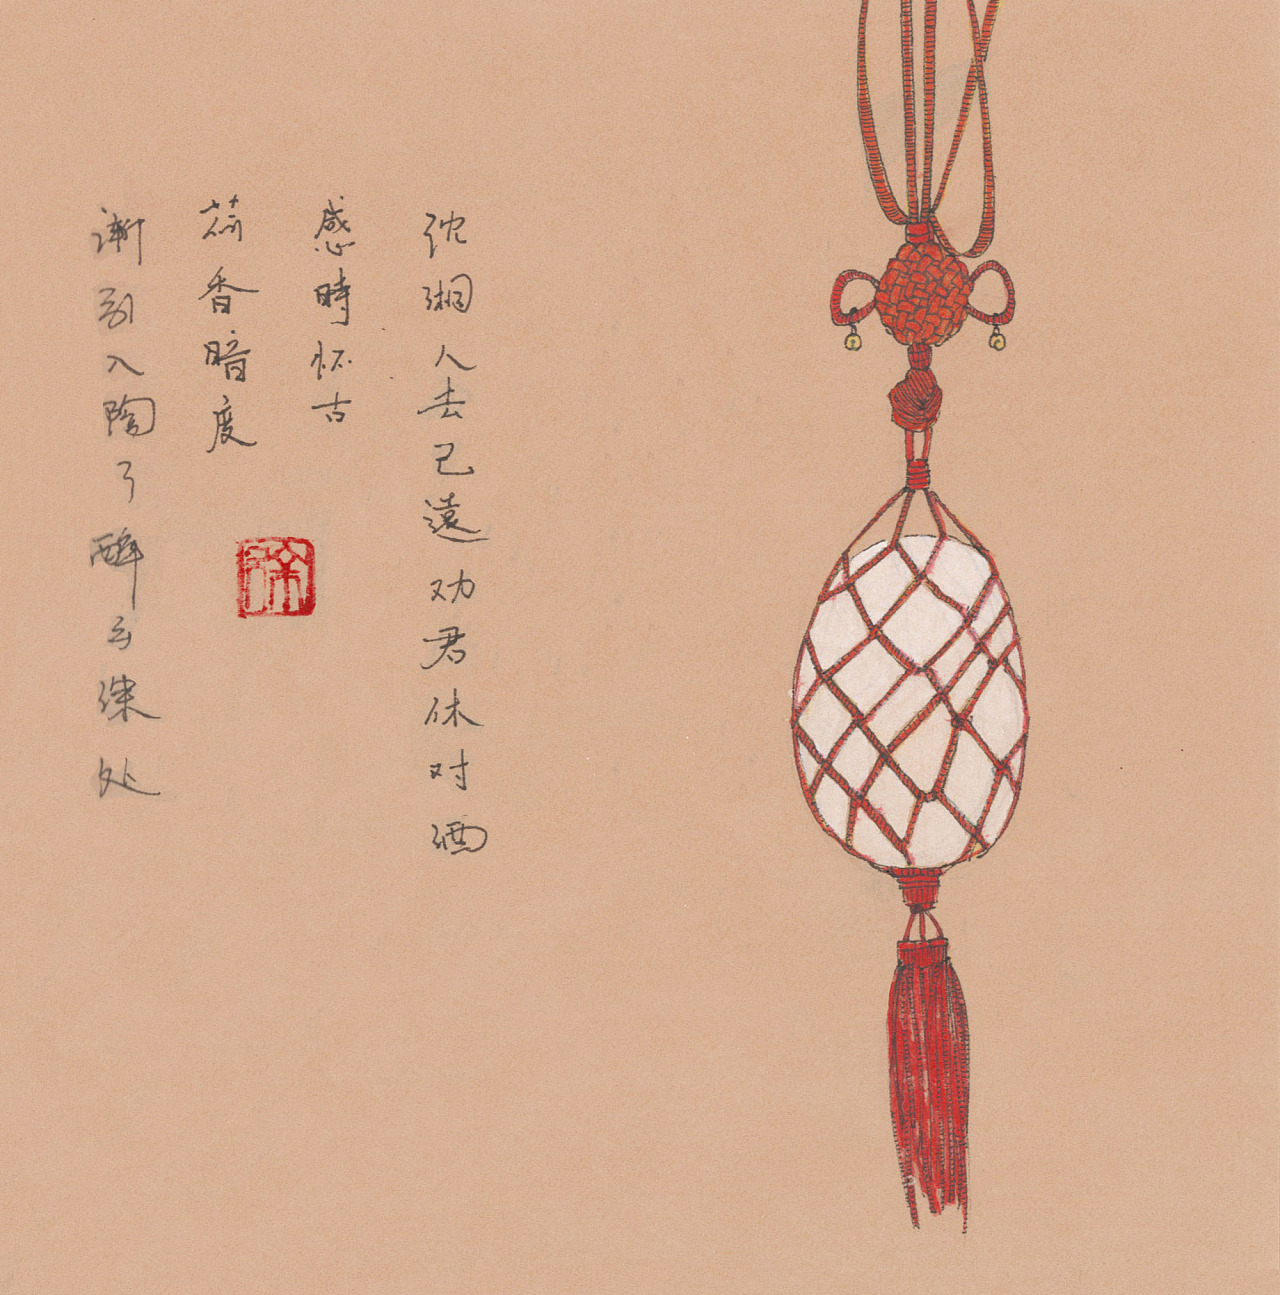 沈湘人去已遠劝君休对酒
感時怀古
荷香暗度
漸引入陶々醉乡深处